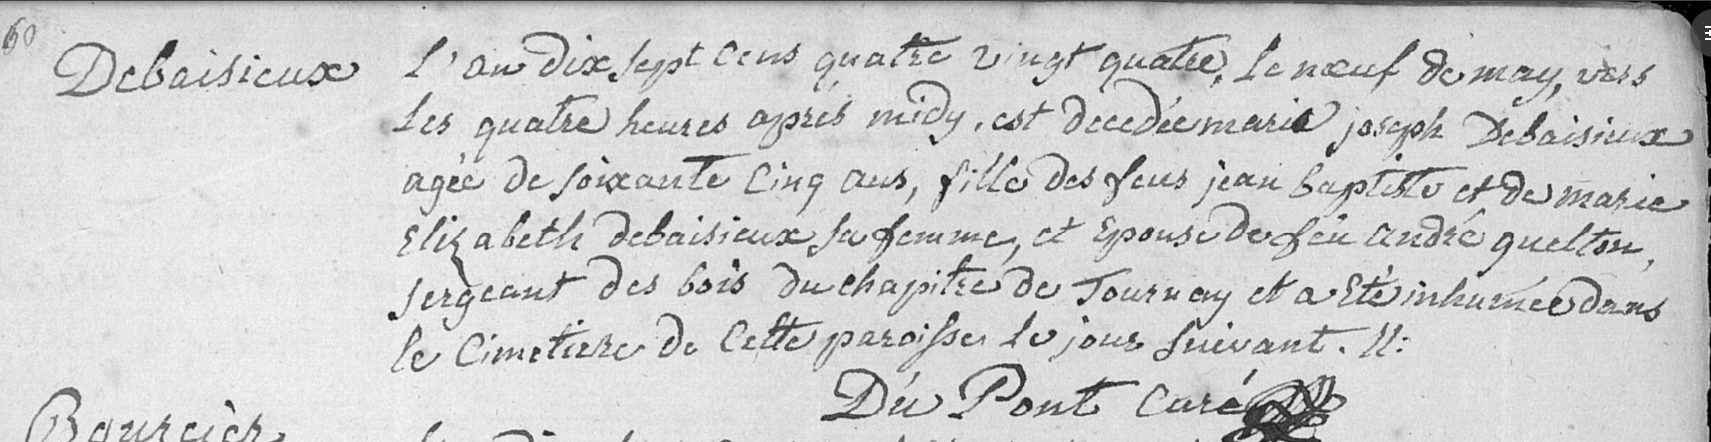 60
Debaisieux
L'an dix sept cens quatre vingt quatre, le nœuf de may, vers
les quatre heures après midy, est decedée marie joseph Debaisieux
agée de soixante cinq ans, fille des feus jean baptiste et de marie
Elizabeth debaisieux sa femme, et Epouse de feu André quelton,
sergeant des bois du chapitre de Tournay et a Eté inhumée dans
le Cimetiere de Cette paroisse le jour suivant. //:
Du Pont Curé
Bourcier